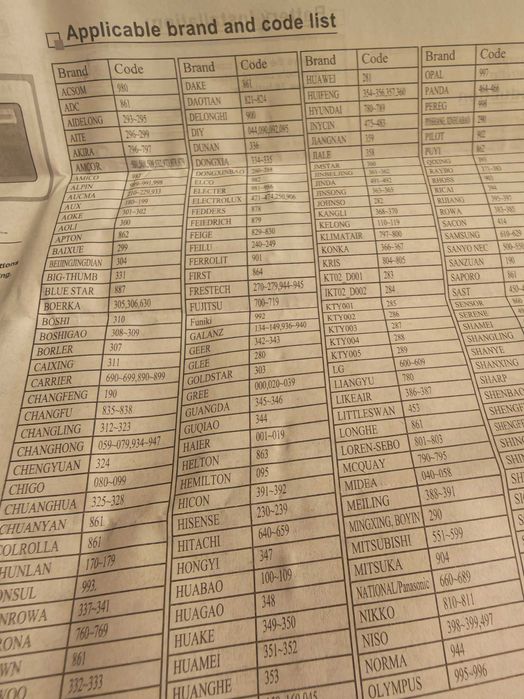 Applicable brand and code list
Brand Code
ACSOM 980
ADC 861
AIDELONG 293~295
AITE 296~299
AKIRA 796~797
AMCOR
AMICO 982
ALPIN 989~991,998
AUCMA 210~229,933
AUX 180~199
AOKE 301~302
AOLI 300
APTON 862
BAIXUE 299
BEIJINGJINGDIAN 304
BIG-THUMB 331
BLUE STAR 887
BOERKA 305,306,630
BOSHI 310
BOSHIGAO 308~309
BORLER 307
CAIXING 311
CARRIER 690~699,890~899
CHANGFENG 190
CHANGFU 835~838
CHANGLING 312~323
CHANGHONG 059~079,934~947
CHENGYUAN 324
CHIGO 080~099
CHUANGHUA 325~328
CHUANYAN 861
COLROLLA 861
HUNLAN 170~179
ONSUL 993,
NROWA 337~341
RONA 760~769
WN 861
WOO 332~333
Brand Code
DAKE 861
DAOTIAN 821~824
DELONGHI 900
DIY 044,090,092,095
DUNAN 336
DONGXIA 334~335
DONGXINBAO 280~288
ELCO 982
ELECTER 981~986
ELECTROLUX 471~474,250,906
FEDDERS 878
FEIEDRICH 879
FEIGE 829~830
FEILU 240~249
FERROLIT 901
FIRST 864
FRESTECH 270~279,944~945
FUJITSU 700~719
Funiki 992
GALANZ 134~149,936~940
GEER 342~343
GLEE 280
GOLDSTAR 303
GREE 000,020~039
GUANGDA 345~346
GUQIAO 344
HAIER 001~019
HELTON 863
HEMILTON 095
HICON 391~392
HISENSE 230~239
HITACHI 640~659
HONGYI 347
HUABAO 100~109
HUAGAO 348
HUAKE 349~350
HUAMEI 351~352
HUANGHE 353
Brand Code
HUAWEI 281
HUIFENG 354~356,357,360
HYUNDAI 780~789
INYCIN 475~483
JIANGNAN 359
JIALE 358
JMSTAR 360
JINBEIJING 361~362
JINDA 491~492
JINSONG 363~365
JOHNSO 282
KANGLI 368~370
KELONG 110~119
KLIMATAIR 797~800
KONKA 366~367
KRIS 804~805
KT02_D001 283
IKT02_D002 284
KTY001 285
KTY002 286
KTY003 287
KTY004 288
KTY005 289
LG 600~609
LIANGYU 780
LIKEAIR 386~387
LITTLESWAN 453
LONGHE 861
LOREN-SEBO 801~803
MCQUAY 790~795
MIDEA 040~058
MEILING 388~391
MINGXING, BOYIN 290
MITSUBISHI 551~599
MITSUKA 904
NATIONAL/Panasonic 660~689
NIKKO 810~811
NISO 398~399,497
NORMA 944
OLYMPUS 995~996
Brand Code
OPAL 997
PANDA 464~466
PEREG 998
290
PILOT 902
PUYI 862
QIXING 393
RAYBO 371~383
RHOSS 903
RICAI 394
RIJIANG 395~397
ROWA 383~385
SACON 414
SAMSUNG 610~629
SANYO NEC
SANZUAN 190
SAPORO 861
SAST
SENSOR
SERENE
SHAMEI
SHANGLING
SHANYE
SHANXING
SHARP
SHENBAO